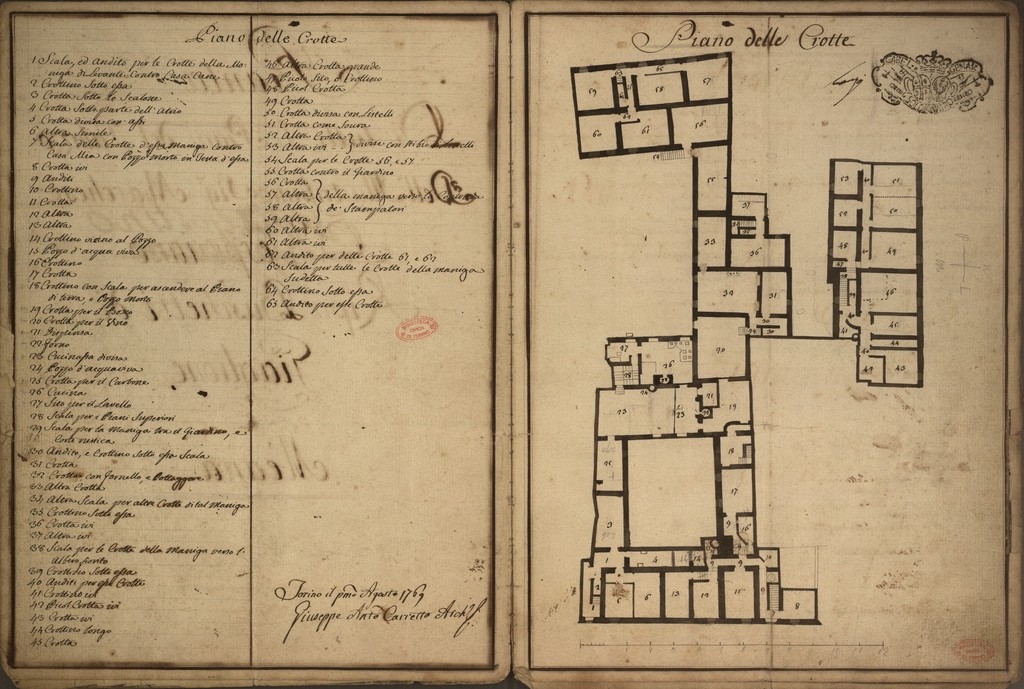 Piano delle Crotte
1 Scala, ed Andito per le Crotte della Ma-
niga di Levante contro Casa Cane
2 Crottino Sotto essa
3 Crotta Sotto lo Scalone
4 Crotta Sotto parte dell'atrio
5 Crotta divisa con assi
6 Altra Simile
7 Scala delle Crotte d'essa Maniga contro
Casa Mea con Pozzo morto in Testa d'essa
8 Crotta ivi
9 Anditi
10 Crottino
11 Crotta
12 Altra
13 Altra
14 Crottino vicino al Pozzo
15 Pozzo d'acqua viva
16 Crottino
17 Crotta
18 Crottino con Scala per ascendere al Piano
di terra, e Pozzo morto
19 Crotta per il Bosco
20 Crotta per il Vino
21 Dispensa
22 Forno
23 Cucinassa divisa
24 Pozzo d'acqua viva
25 Crotta per il Carbone
26 Cucina
27 Sito per il Lavello
28 Scala per i Piani Superiori
29 Scala per la Maniga tra il Giardino, e
Corte rustica
30 Andito, e Crottino Sotto essa Scala
31 Crotta
32 Crotta con fornello, e Pottaggere
33 Altra Crotta
34 Altra Scala per altre Crotte di tal Maniga
35 Crottino Sotto essa
36 Crotta ivi
37 Altra ivi
38 Scala per le Crotte della Maniga verso l'
Albero fiorito
39 Crottino Sotto essa
40 Anditi per esse Crotte
41 Crottino ivi
42 Picol Crotta ivi
43 Crotta ivi
44 Crottino longo
45 Crotta
46 Altra Crotta grande
47 Picol Sito, o Crottino
48 Picol Crotta
49 Crotta
50 Crotta divisa con Listelli
51 Crotta come Sovra
52 Altra Crotta
53 Altra ivi divise con Listelli
54 Scala per le Crotte 56, e 57
55 Crotta contro il Giardino
56 Crotta
57 Altra
58 Altra
59 Altra
della maniga verso la
de' Stampatori
60 Altra ivi
61 Altra ivi
62 Andito per delle Crotte 61, e 62
63 Scala per tutte le Crotte della maniga
Sudetta
64 Crottino Sotto essa
65 Andito per esse Crotte
Torino il pmo Agosto 1763
Giuseppe Anto Carretto Archo
Piano delle Crotte